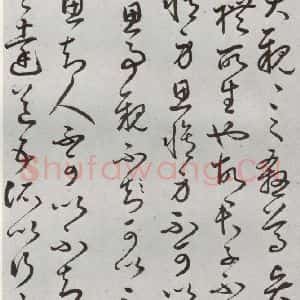 大親〻之殺尊賢
禮所生也故君子不
修身思修身不可以
思事親不可以
思知人不可以不知
之達道五所以行
Shufawang.CN